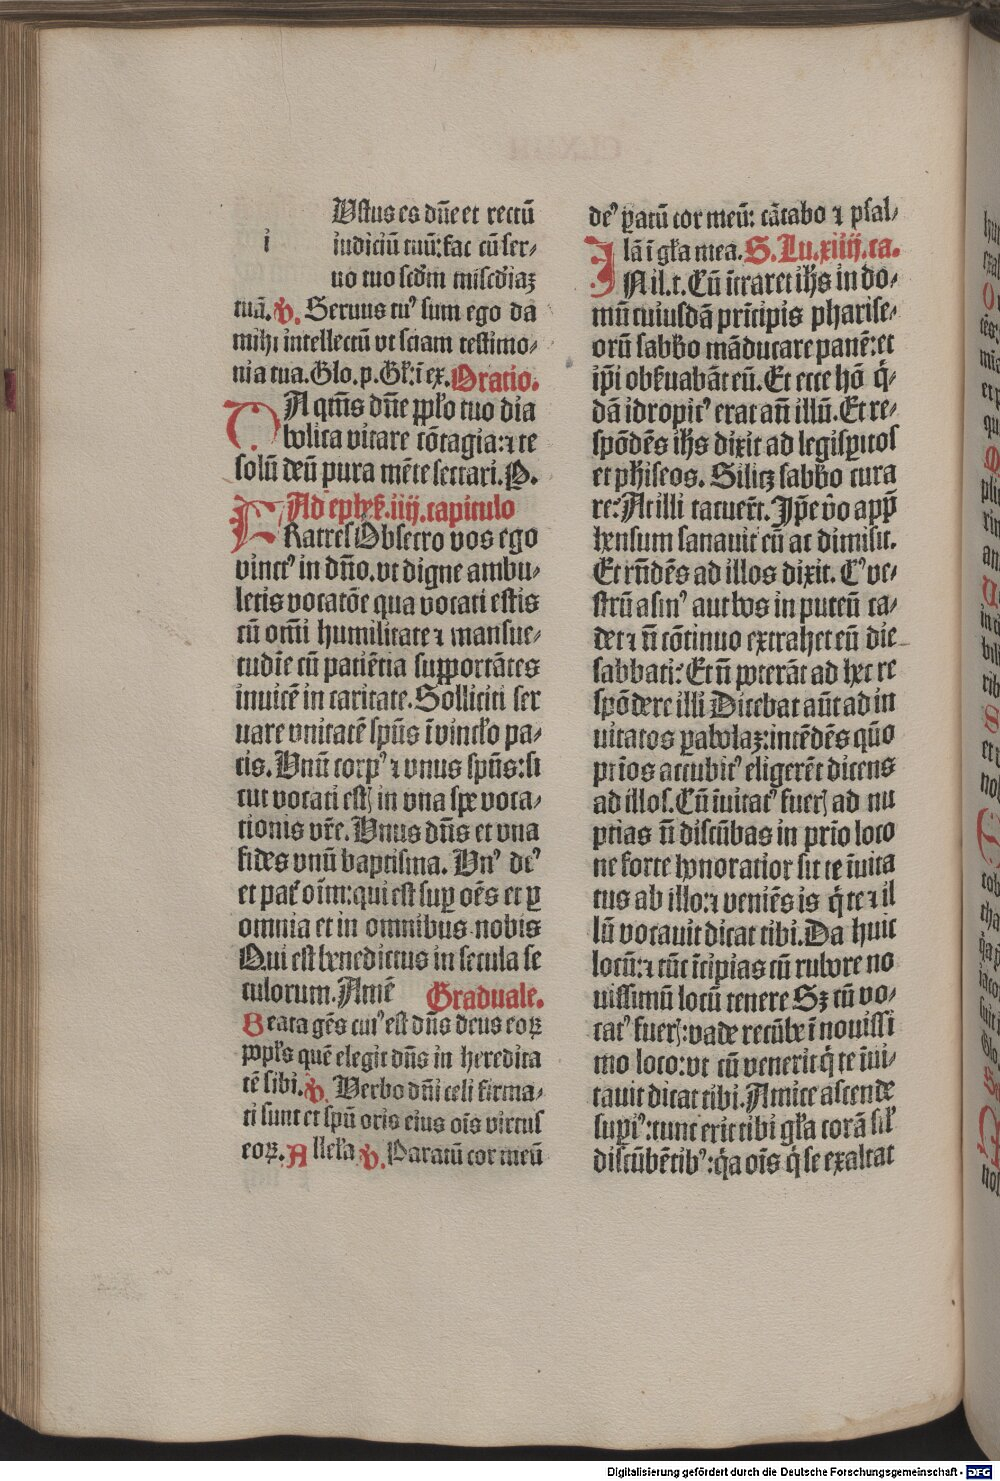 Ustus es dn̄e et rectū
i iudiciū tuū: fac cū ser⸗
uo tuo scd̄m misc̄diaꝫ
tuā. v̸. Seruus tuꝰ sum ego da
mihi intellectū vt sciam testimo⸗
nia tua. Glo. p. Gl̄: i ex. Oratio.
DA qm̄s dn̄e ppl̄o tuo dia
bolica vitare cōtagia: ⁊ te
solū deū pura mēte sectari. P.
Ad ephes̄. iiij. capitulo
FRatres Obsecro vos ego
vinctꝰ in dn̄o. vt digne ambu⸗
letis vocatōe qua vocati estis
cū om̄i humilitate ⁊ mansue⸗
tudīe cū patiētia supportātes
inuicē in caritate. Solliciti ser
uare vnitatē spūs ī vincl̄o pa⸗
cis. Vnū corpꝰ ⁊ vnus spūs: si
cut vocati estꝭ in vna spe voca⸗
tionis vr̄e. Vnus dn̄s et vna
fides vnū baptisma. Vnꝰ deꝰ
et pat̄ oīm: qui est suꝑ oēs et ꝑ
omnia et in omnibus nobis
Qui est benedictus in secula se
culorum. Amē Graduale.
Beata gēs cuiꝰ est dn̄s deus eoꝝ
ppl̄s quē elegit dn̄s in heredita
tē sibi. v̸. Verbo dn̄i celi firma⸗
ti sunt et spū oris eius oīs virtus
eoꝝ. Allel̄a v̸. Paratū cor meū
deꝰ ꝑatū cor meū: cātabo ⁊ psal⸗
lā ī gl̄a mea. S. Lu. xiiij. ca.
IN il. t. Cū ītraret ih̄s in do⸗
mū cuiusdā prīcipis pharise⸗
orū sabb̄o māducare panē: et
ip̄i obs̄uabāt eū. Et ecce hō q̄⸗
dā idropicꝰ erat an̄ illū. Et re⸗
spōdēs ih̄s dixit ad legisꝑitos
et phiseos. Si licꝫ sabb̄o cura
re? At illi tacuer̄t. Ip̄e v̄o app̄
hensum sanauit eū ac dimisit.
Et rn̄dēs ad illos dixit. Cꝰ ve⸗
strū asinꝰ aut bos in puteū ca⸗
det ⁊ n̄ cōtinuo extrahet eū die
sabbati? Et n̄ poterāt ad hec re
spōdere illi Dicebat aūt ad in
uitatos ꝑabolaꝫ: intēdēs qūo
prīos accubitꝰ eligerēt dicens
ad illos. Cū īuitatꝰ fuerꝭ ad nu
ptias n̄ discūbas in prīo loco
ne forte honoratior sit te īuita
tus ab illo: ⁊ veniēs is q̄ te ⁊ il
lū vocauit dicat tibi. Da huic
locū: ⁊ tūc īcipias cū rubore no
uissimū locū tenere Sꝫ cū vo⸗
catꝰ fuerꝭ: vade recūbe ī nouissi
mo loco: vt cū venerit q̄ te īui⸗
tauit dicat tibi. Amice ascende
suꝑiꝰ: tunc erit tibi gl̄a corā sil̄
discūbētibꝰ: q̄a oīs q̄ se exaltat
Digitalisierung gefördert durch die Deutsche Forschungsgemeinschaft - DFG